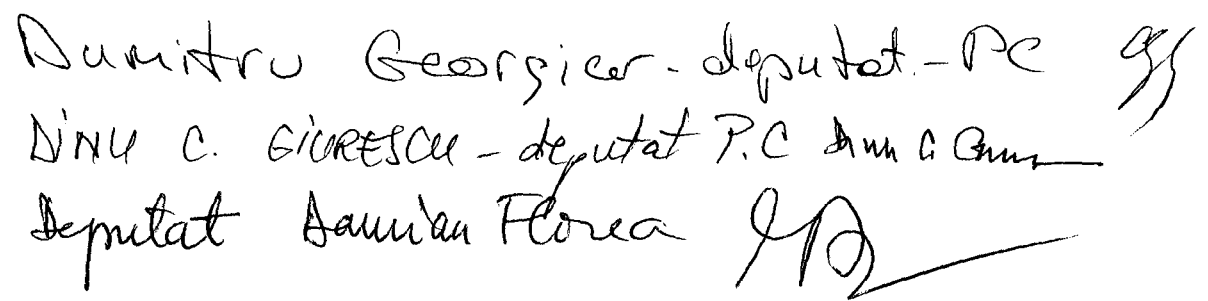 Dumitru Georgica - deputat - PC
DINU C. GIURESCU - deputat P.C Dinu C.
Deputat Damian Florea